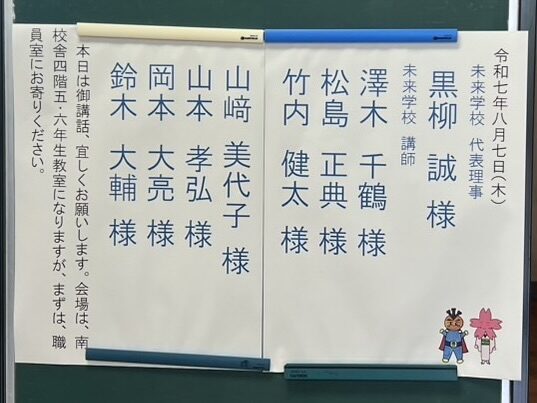 令和七年八月七日(木)
未来学校 代表理事
黒柳 誠 様
未来学校 講師
澤木 千鶴 様
松島 正典 様
竹内 健太 様
山﨑 美代子 様
山本 孝弘 様
岡本 大亮 様
鈴木 大輔 様
本日は御講話、宜しくお願いします。会場は、南
校舎四階五・六年生教室になりますが、まずは、職
員室にお寄りください。